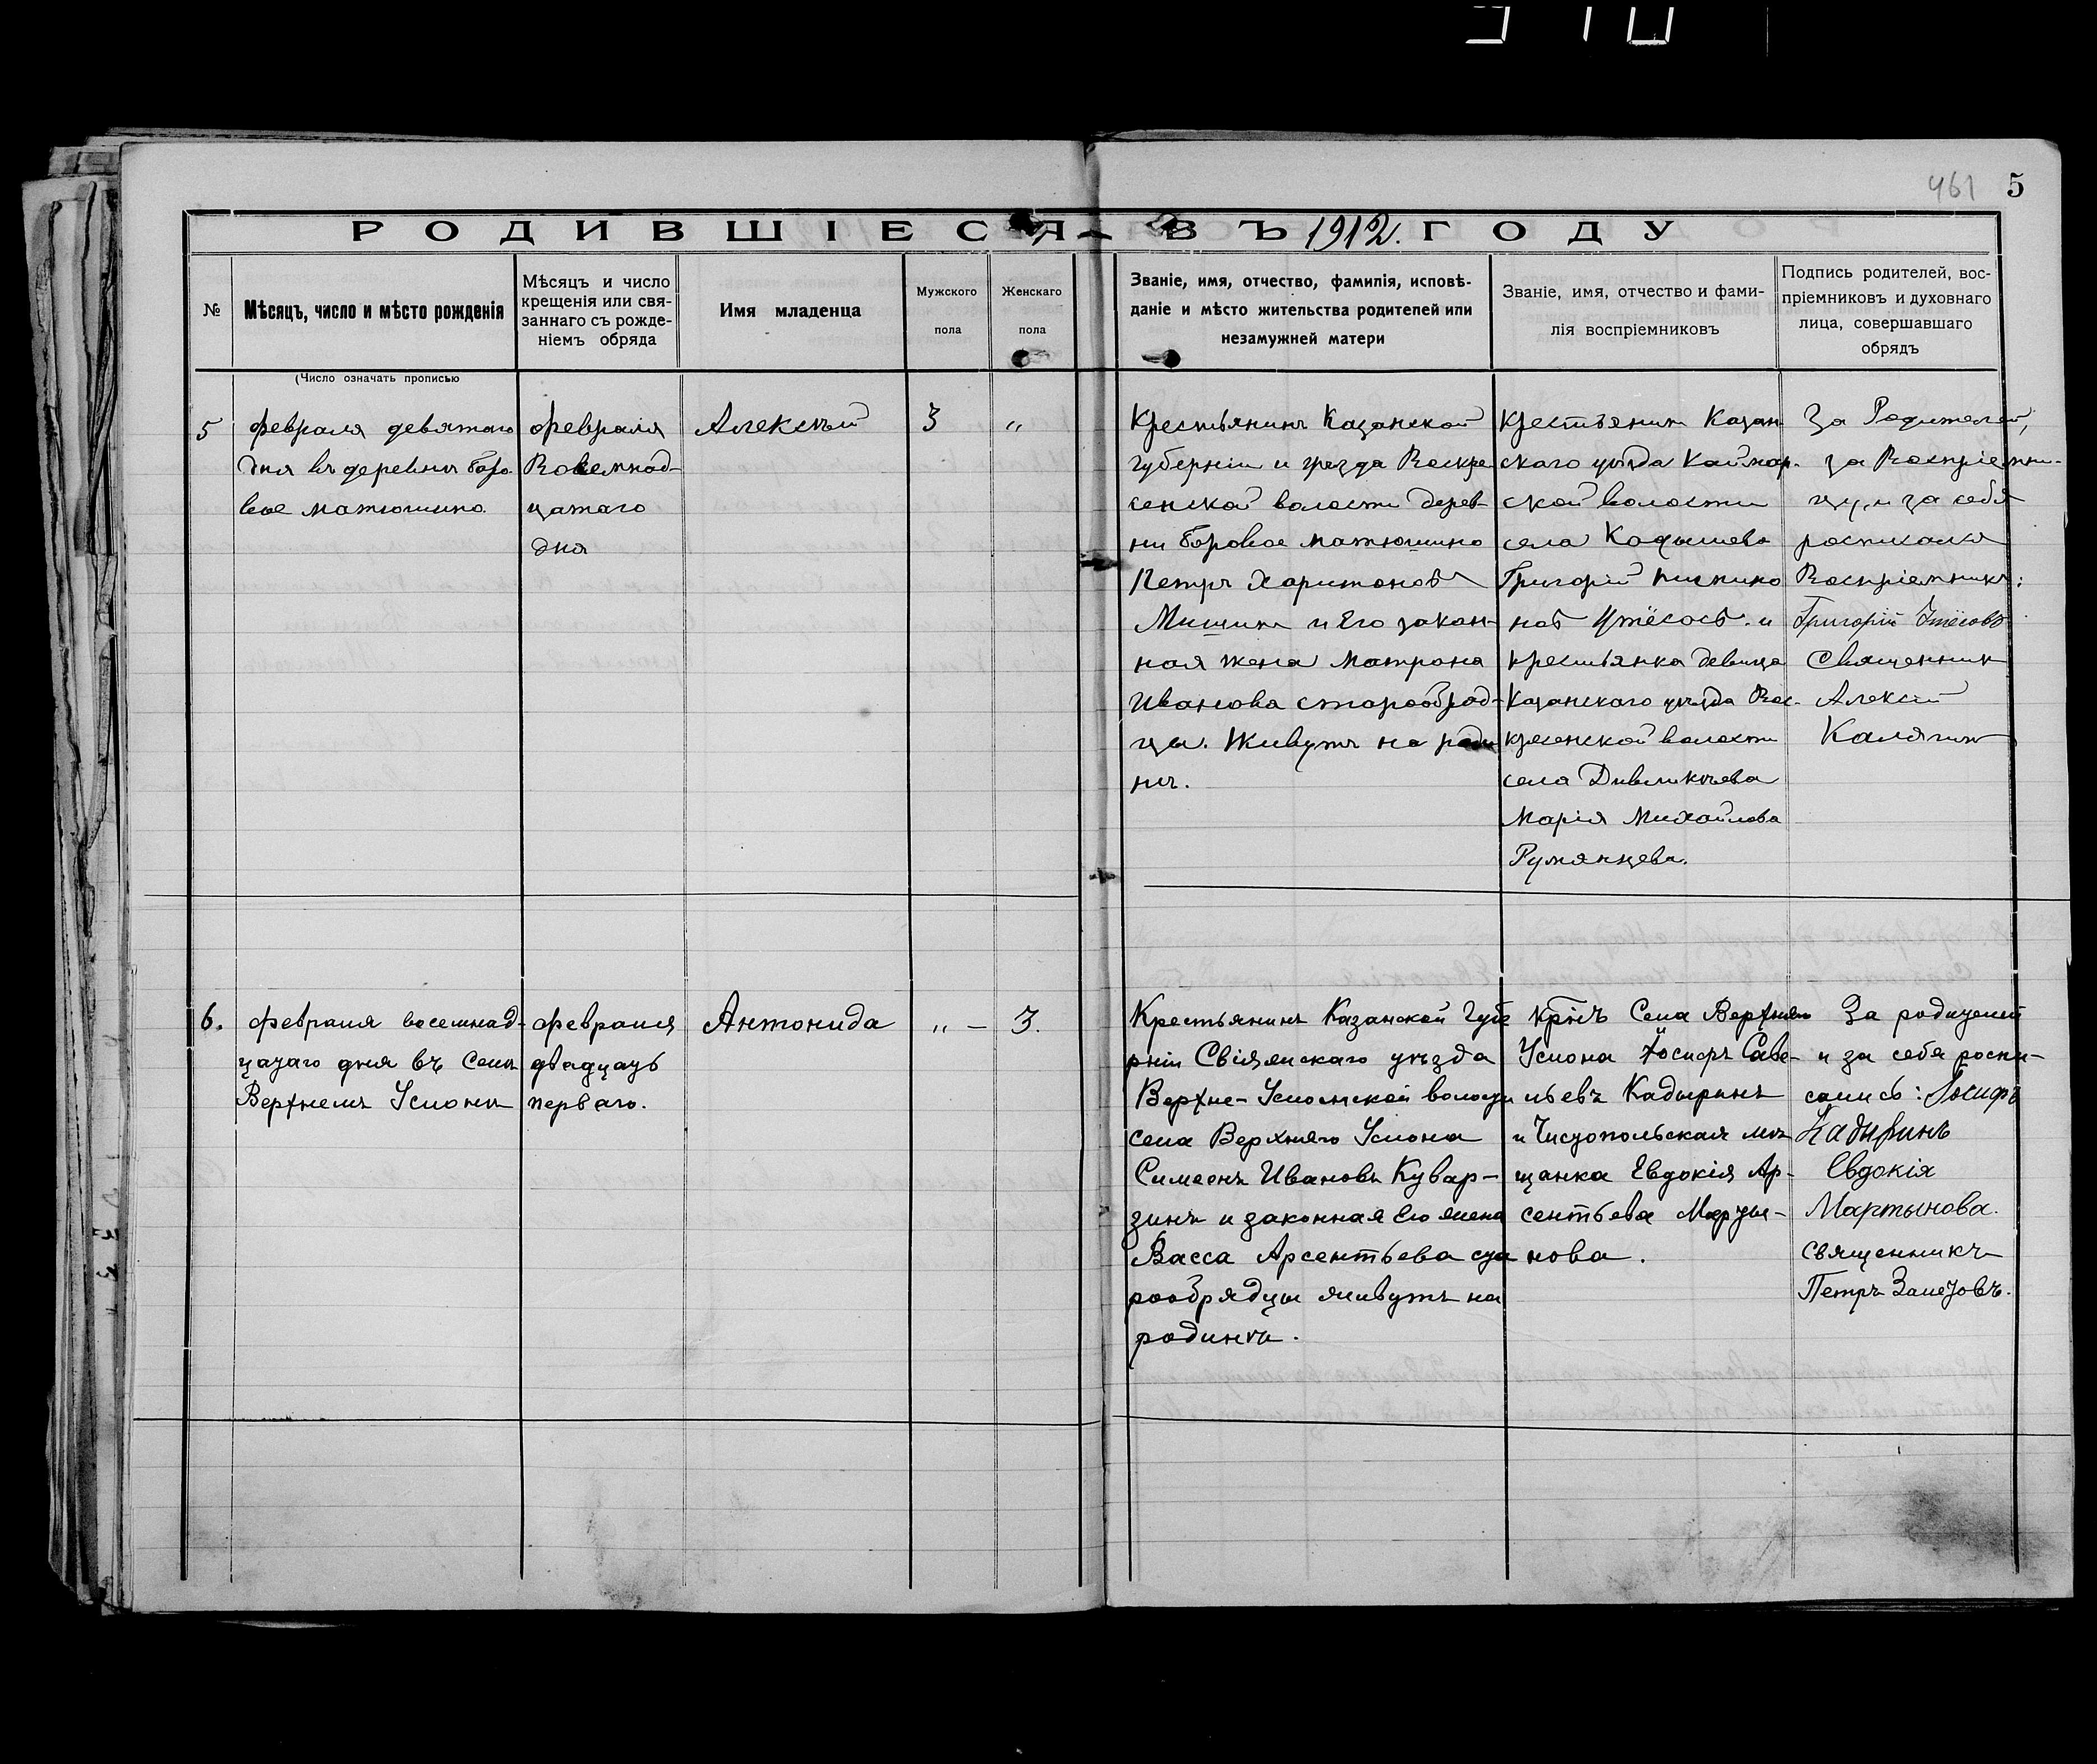 461 5
РОДИВШІЕСЯ ВЪ 1912. ГОДУ
№
Мѣсяцъ, число и мѣсто рожденія
Мѣсяцъ и число
крещенія или свя-
заннаго съ рожде-
ніемъ обряда
Имя младенца
Мужского
пола
Женскаго
пола
Званіе, имя, отчество, фамилія, исповѣ-
даніе и мѣсто жительства родителей или
незамужней матери
Званіе, имя, отчество и фами-
лія воспріемниковъ
Подпись родителей, вос-
пріемниковъ и духовнаго
лица, совершавшаго
обрядъ
(Число означать прописью
5
февраля девятаго
дня въ деревнѣ Боро
вое матюшино
февраля
Восемнад-
цатаго
дня
Алексѣй
3
"
Крестьянинъ Казанской
губерніи и уѣзда Воскре
сенской волости дерев-
ни Боровое матюшино
Петръ Харитоновъ
Мишин и Его закон-
ная жена матрона
Иванова старообряд-
цы. Живутъ на роди
нѣ.
Крестьянин Казан
скаго уѣзда Каймар-
ской волости
села Кадышево
Григорій
Утёсовъ. и
крестьянка девица
Казанскаго уѣзда Вос-
кресенской волости
села
Марія Михайлова
Румянцева.
За Родителей,
за Воспріемни-
цу, и за себя
росписался
Воспріемникъ:
Григорій Утёсовъ
Священник
Алексій
Калягин
6.
февраля восемнад-
цатаго дня въ Селѣ
Верхнемъ Услонѣ
февраля
двадцать
перваго.
Антонида
" -
3.
Крестьянинъ Казанской Губе
рніи Свіяжскаго уѣзда
Верхне-Услонской волости
села Верхняго Услона
Симеонъ Ивановъ Кувар-
зинъ и законная Его жена
Васса Арсентьева ста
рообрядцы живутъ на
родинѣ.
Крнъ Села Верхняго
Услона Іосифъ Саве-
льевъ Кадыринъ
и Чистопольская мѣ
щанка Евдокія Ар-
сентьева Марты-
нова.
За родителей
и за себя роспи-
сались: Іосифъ
Кадыринъ
Евдокія
Мартынова.
священникъ
Петръ Залетовъ.